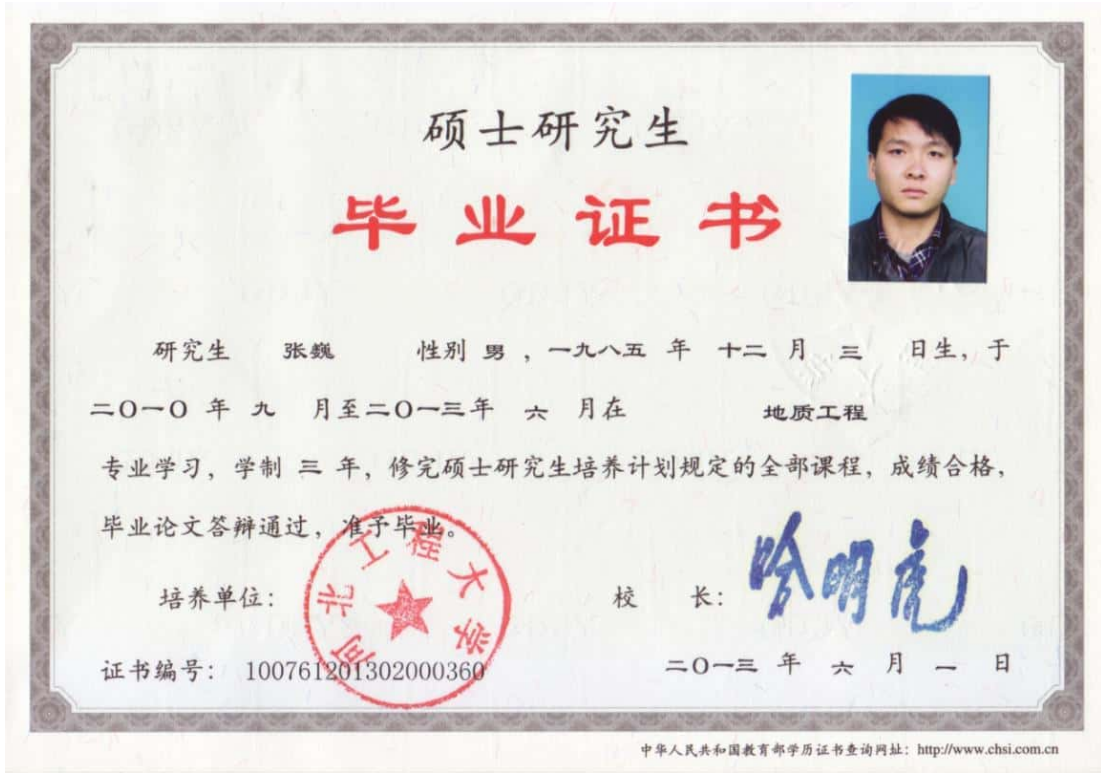 硕士研究生
毕业证书
研究生 张巍 性别 男 ，一九八五 年 十二 月 三 日生，于
二〇一〇 年 九 月至二〇一三年 六 月在 地质工程
专业学习，学制 三 年，修完硕士研究生培养计划规定的全部课程，成绩合格，
毕业论文答辩通过，准予毕业。
培养单位：
河北工程大学
校 长：
哈明虎
证书编号： 100761201302000360
二〇一三 年 六 月 一 日
中华人民共和国教育部学历证书查询网址：http://www.chsi.com.cn